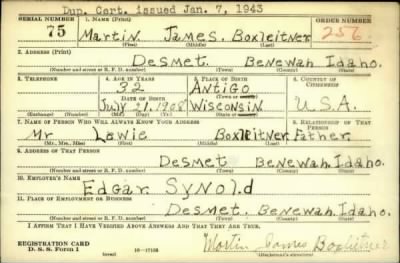 Dup. Cert. issued Jan. 7, 1943
SERIAL NUMBER 1. NAME (Print) ORDER NUMBER
75 Martin James Boxleitner 256
(First) (Middle) (Last)
2. ADDRESS (Print)
Desmet. Benewah Idaho.
(Number and street or R. F. D. number) (Town) (County) (State)
3. TELEPHONE 4. AGE IN YEARS 5. PLACE OF BIRTH 6. COUNTRY OF CITIZENSHIP
32 Antigo
DATE OF BIRTH (Town or county)
July 1908 Wisconsin U.S.A.
(Exchange) (Number) (Mo.) (Day) (Yr.) (State or country)
7. NAME OF PERSON WHO WILL ALWAYS KNOW YOUR ADDRESS 8. RELATIONSHIP OF THAT PERSON
Mr Lewie Boxleitner Father
(Mr., Mrs., Miss) (First) (Middle) (Last)
9. ADDRESS OF THAT PERSON
Desmet Benewah. Idaho.
(Number and street or R. F. D. number) (Town) (County) (State)
10. EMPLOYER'S NAME
Edgar Synold
11. PLACE OF EMPLOYMENT OR BUSINESS
Desmet. Benewah Idaho.
(Number and street or R. F. D. number) (Town) (County) (State)
I AFFIRM THAT I HAVE VERIFIED ABOVE ANSWERS AND THAT THEY ARE TRUE.
REGISTRATION CARD
D. S. S. Form 1 16—17105 Martin James Boxleitner
(over) (Registrant's signature)